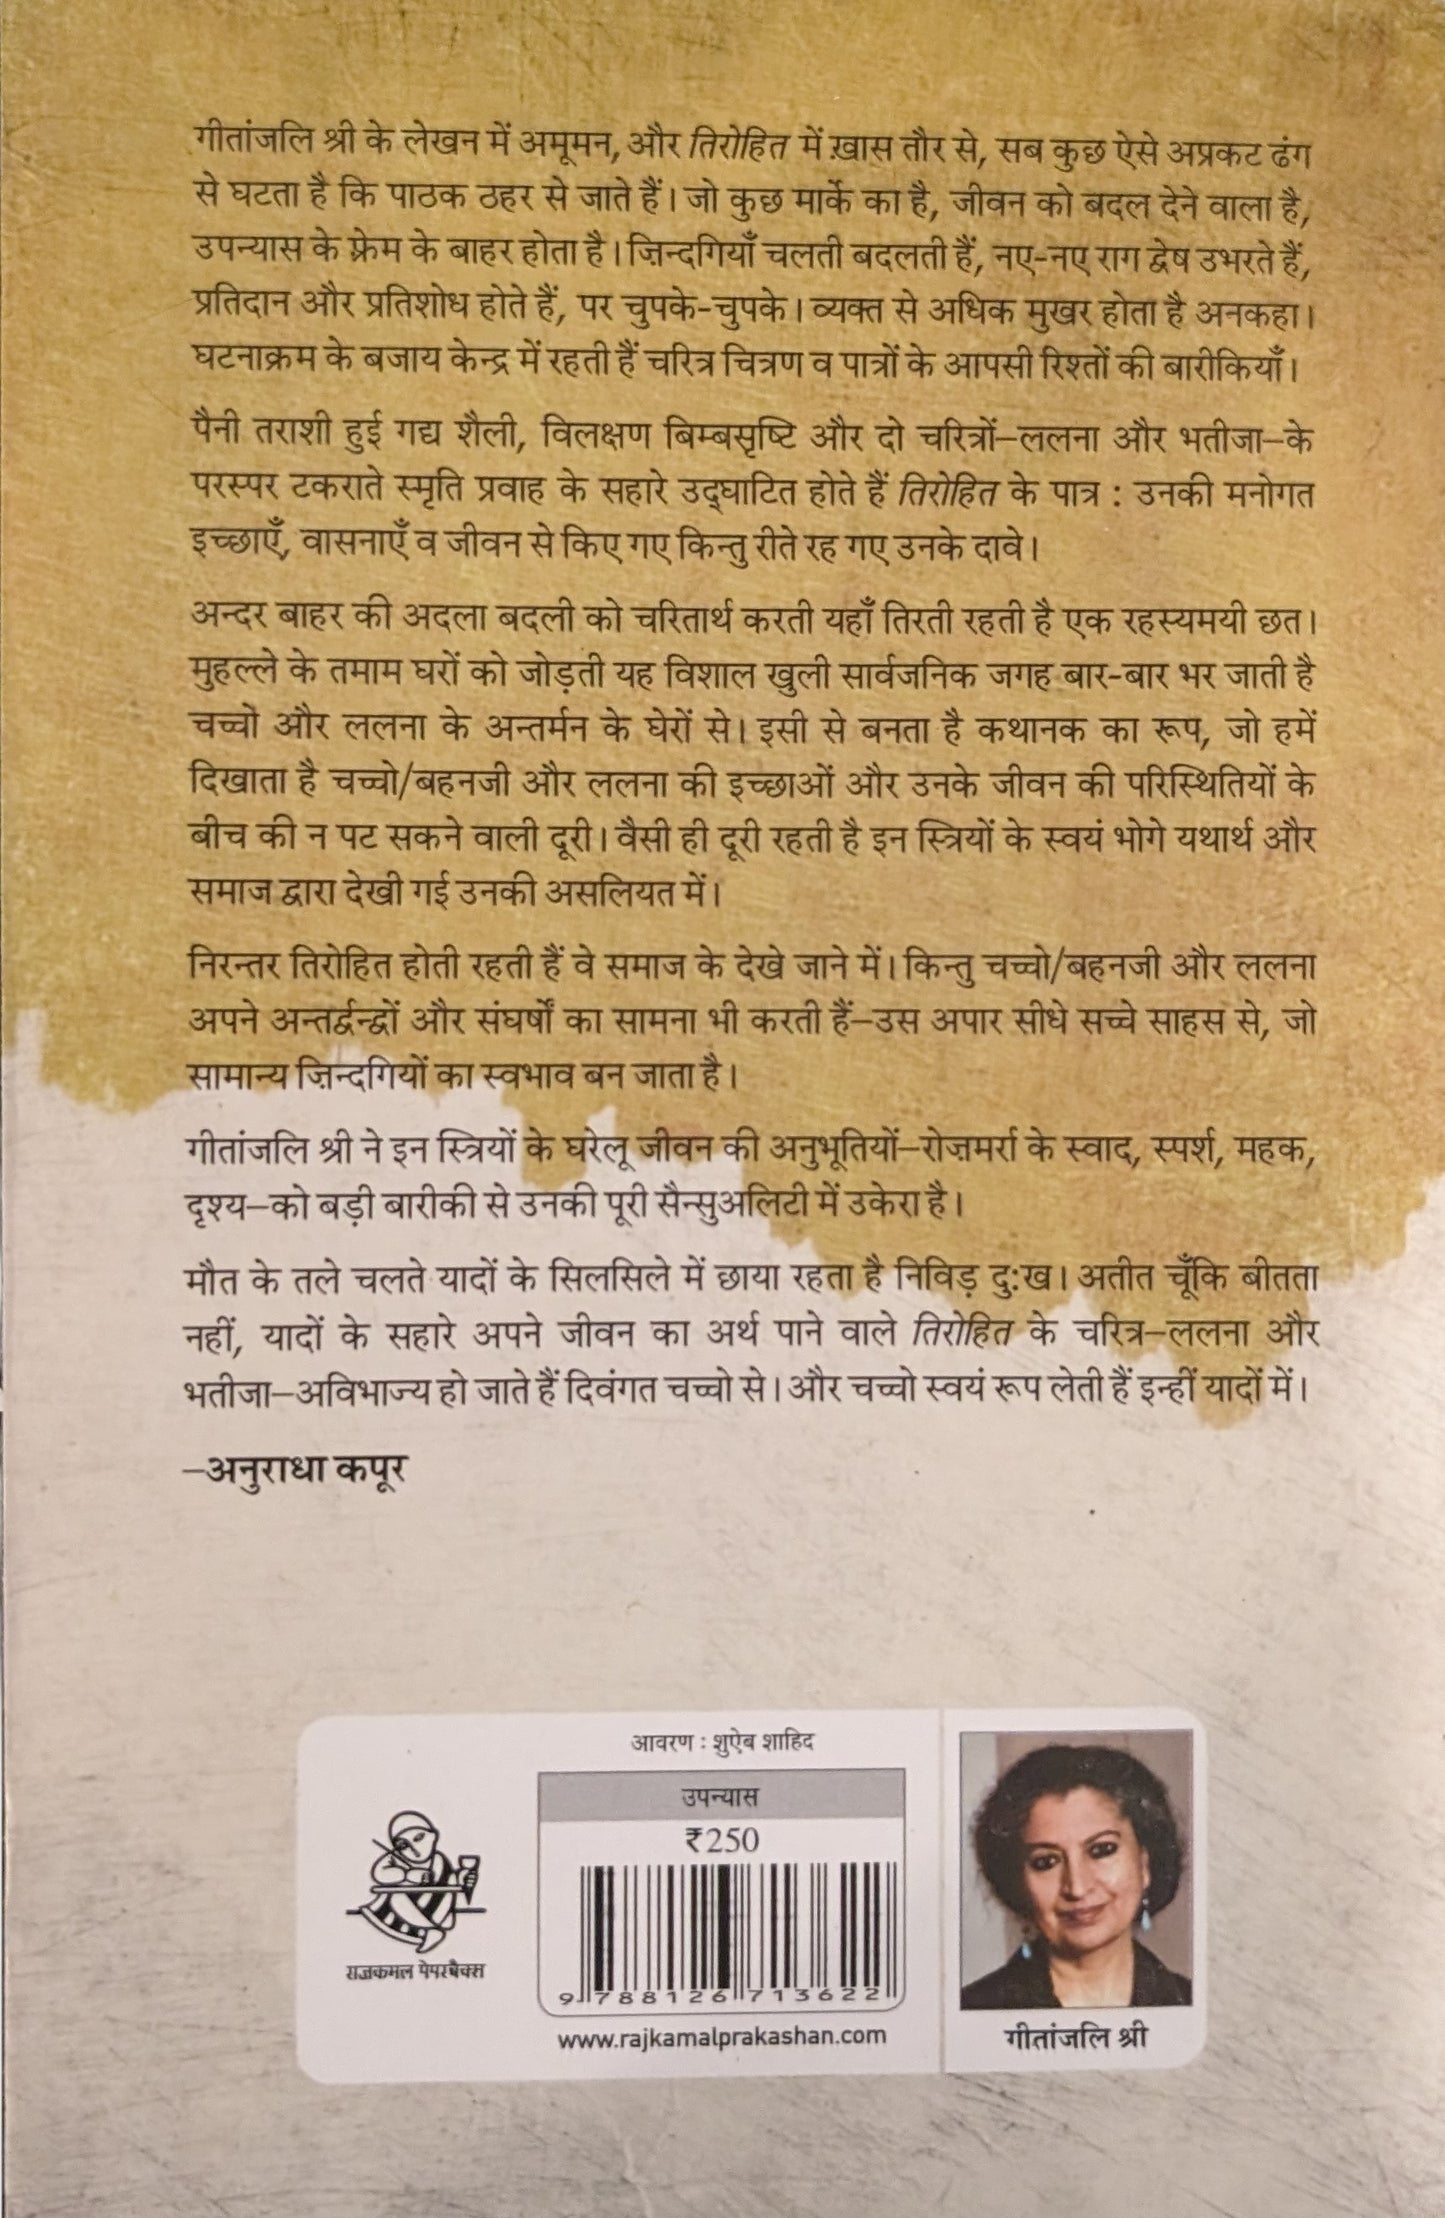 गीतांजलि श्री के लेखन में अमूमन, और तिरोहित में ख़ास तौर से, सब कुछ ऐसे अप्रकट ढंग
से घटता है कि पाठक ठहर से जाते हैं। जो कुछ मार्के का है, जीवन को बदल देने वाला है,
उपन्यास के फ़्रेम के बाहर होता है। ज़िन्दगियाँ चलती बदलती हैं, नए-नए राग द्वेष उभरते हैं,
प्रतिदान और प्रतिशोध होते हैं, पर चुपके-चुपके। व्यक्त से अधिक मुखर होता है अनकहा।
घटनाक्रम के बजाय केन्द्र में रहती हैं चरित्र चित्रण व पात्रों के आपसी रिश्तों की बारीकियाँ।
पैनी तराशी हुई गद्य शैली, विलक्षण बिम्बसृष्टि और दो चरित्रों–ललना और भतीजा–के
परस्पर टकराते स्मृति प्रवाह के सहारे उद्‌घाटित होते हैं तिरोहित के पात्र : उनकी मनोगत
इच्छाएँ, वासनाएँ व जीवन से किए गए किन्तु रीते रह गए उनके दावे।
अन्दर बाहर की अदला बदली को चरितार्थ करती यहाँ तिरती रहती है एक रहस्यमयी छत।
मुहल्ले के तमाम घरों को जोड़ती यह विशाल खुली सार्वजनिक जगह बार-बार भर जाती है
चच्चो और ललना के अन्तर्मन के घेरों से। इसी से बनता है कथानक का रूप, जो हमें
दिखाता है चच्चो/बहनजी और ललना की इच्छाओं और उनके जीवन की परिस्थितियों के
बीच की न पट सकने वाली दूरी। वैसी ही दूरी रहती है इन स्त्रियों के स्वयं भोगे यथार्थ और
समाज द्वारा देखी गई उनकी असलियत में।
निरन्तर तिरोहित होती रहती हैं वे समाज के देखे जाने में। किन्तु चच्चो/बहनजी और ललना
अपने अन्तर्द्वन्द्वों और संघर्षों का सामना भी करती हैं–उस अपार सीधे सच्चे साहस से, जो
सामान्य ज़िन्दगियों का स्वभाव बन जाता है।
गीतांजलि श्री ने इन स्त्रियों के घरेलू जीवन की अनुभूतियों–रोज़मर्रा के स्वाद, स्पर्श, महक,
दृश्य–को बड़ी बारीकी से उनकी पूरी सैन्सुअलिटी में उकेरा है।
मौत के तले चलते यादों के सिलसिले में छाया रहता है निविड़ दु:ख। अतीत चूँकि बीतता
नहीं, यादों के सहारे अपने जीवन का अर्थ पाने वाले तिरोहित के चरित्र–ललना और
भतीजा–अविभाज्य हो जाते हैं दिवंगत चच्चो से। और चच्चो स्वयं रूप लेती हैं इन्हीं यादों में।
–अनुराधा कपूर
आवरण : शुऐब शाहिद
उपन्यास
₹250
9 788126 713622
www.rajkamalprakashan.com
राजकमल पेपरबैक्स
गीतांजलि श्री